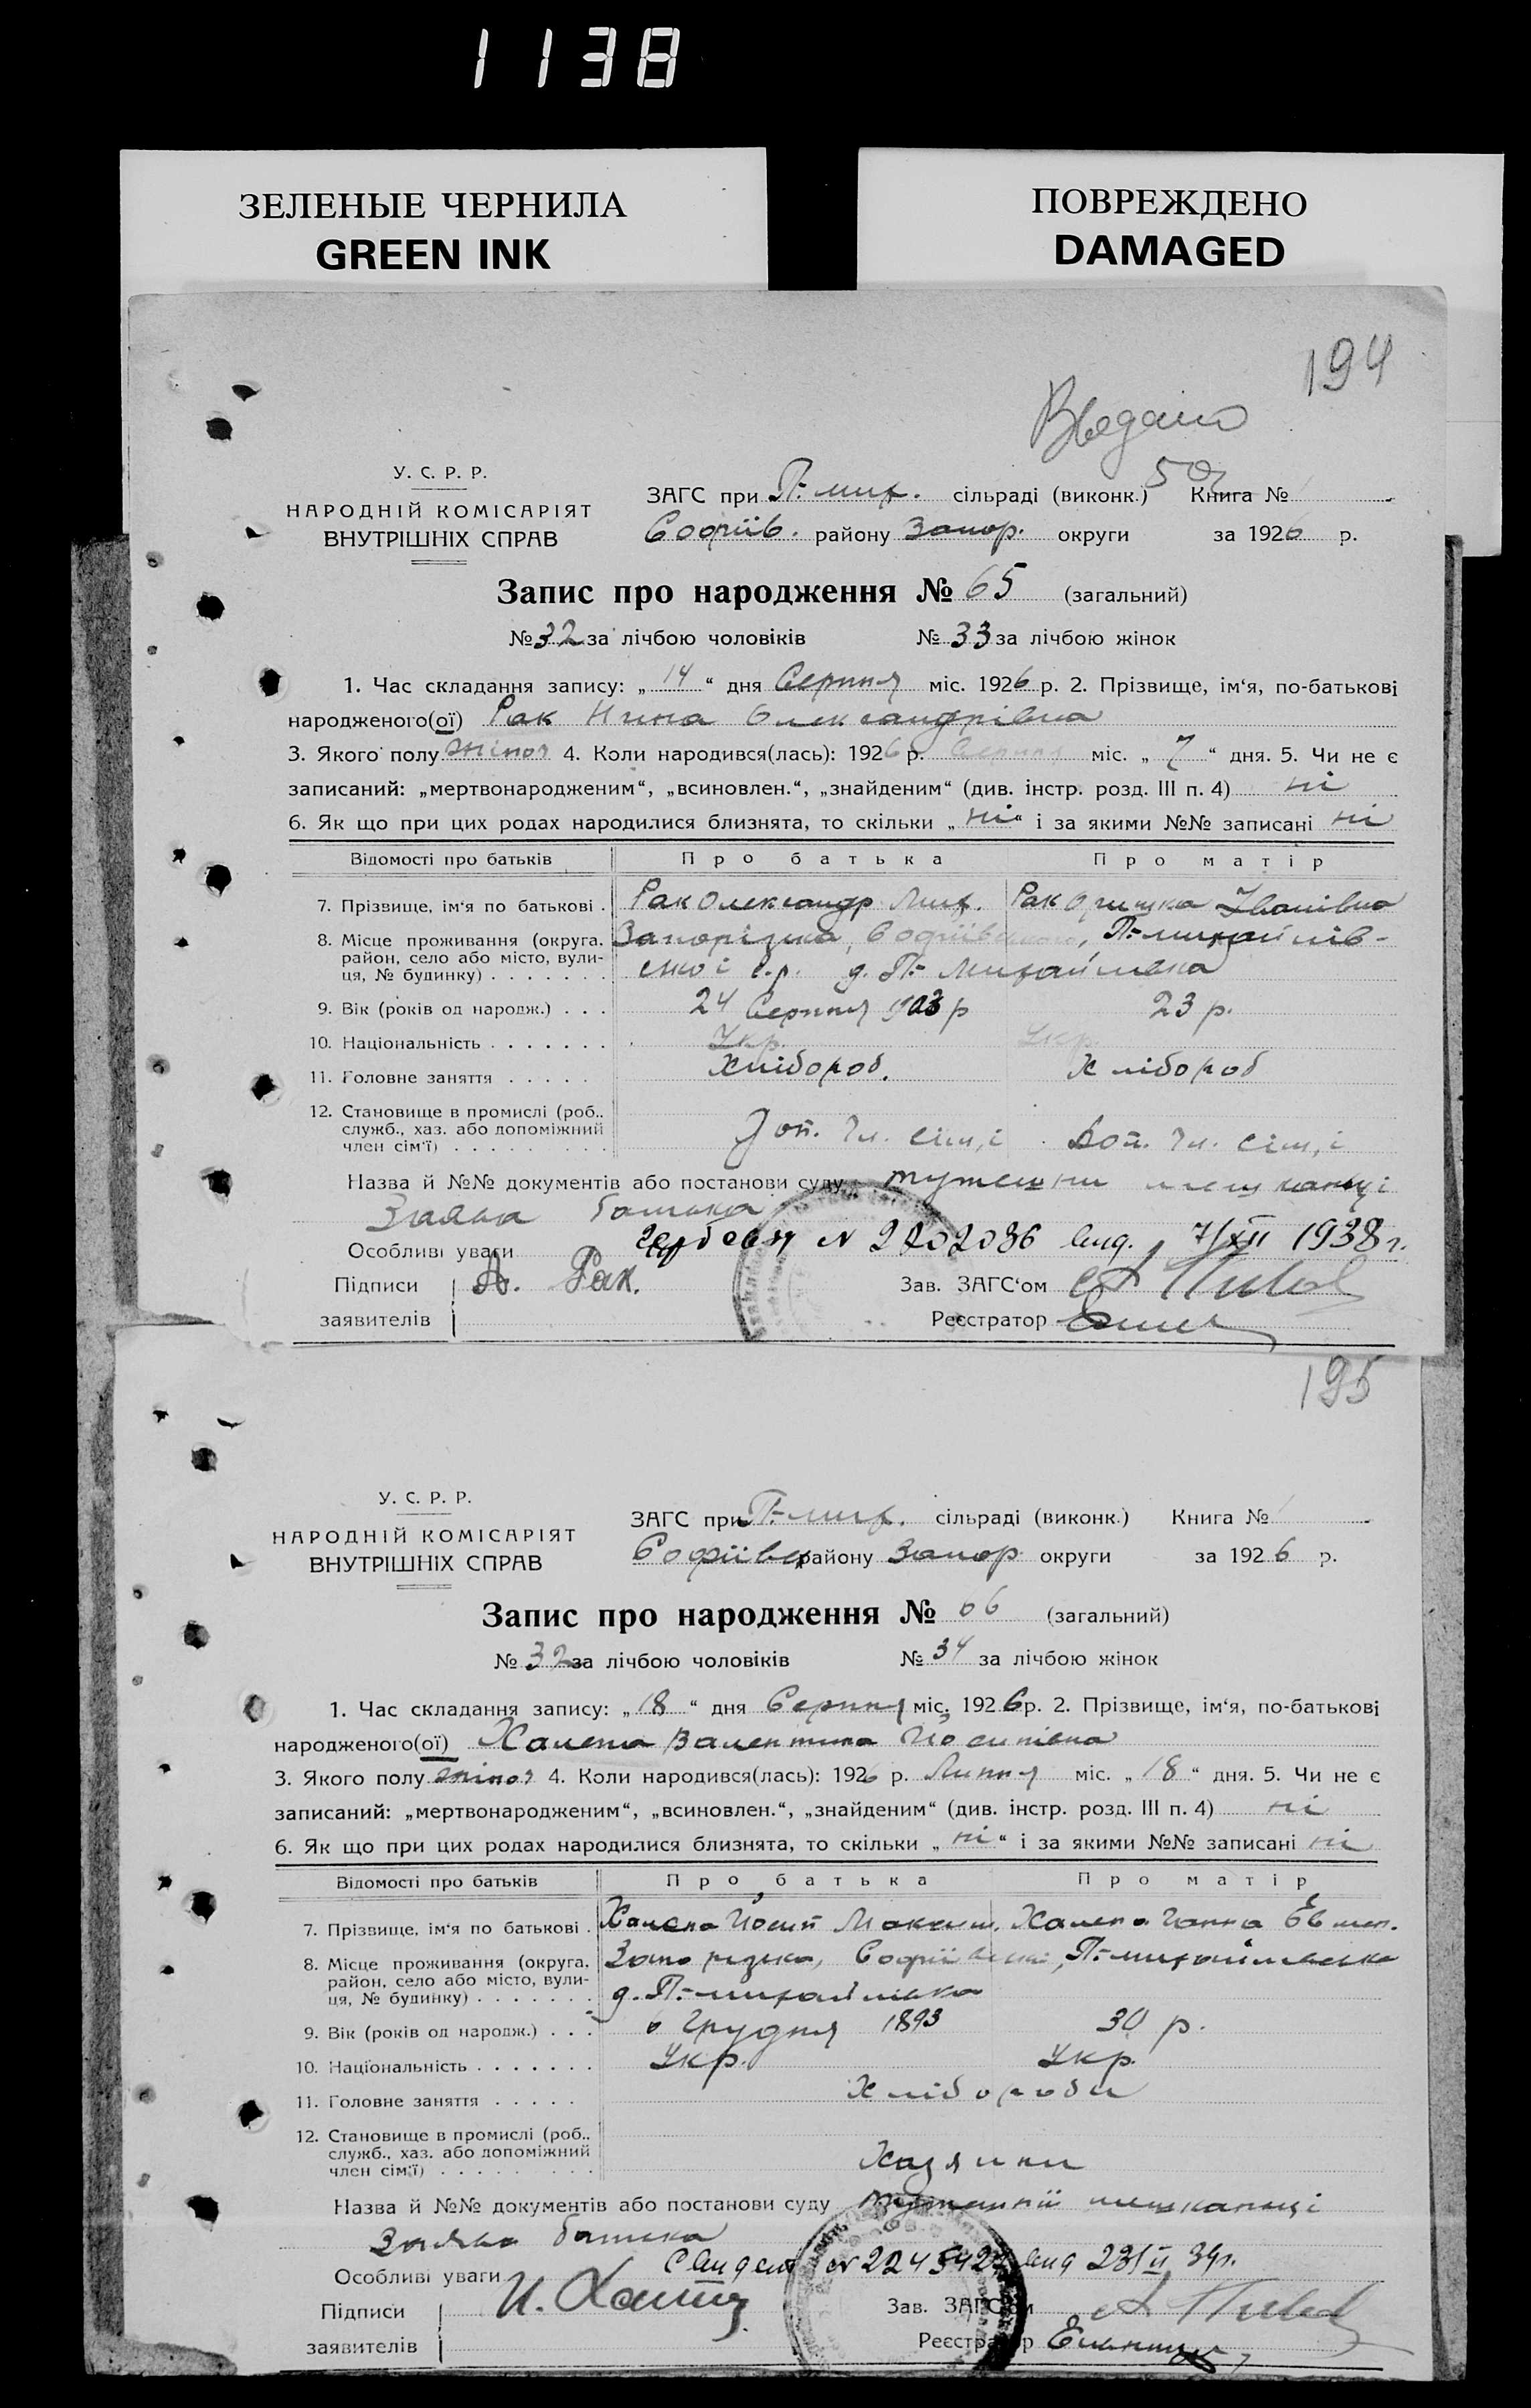 1138
ЗЕЛЕНЫЕ ЧЕРНИЛА
GREEN INK
ПОВРЕЖДЕНО
DAMAGED
194
У. С. Р. Р.
НАРОДНІЙ КОМІСАРІЯТ
ВНУТРІШНІХ СПРАВ
ЗАГС при П.-мих. сільраді (виконк.) Книга №
Софіїв. району Запор. округи за 1926 р.
Запис про народження № 65 (загальний)
№ 32 за лічбою чоловіків № 33 за лічбою жінок
1. Час складання запису: „14“ дня Серпня міс. 1926 р. 2. Прізвище, ім‘я, по-батькові
народженого(ої) Рак Нина Олександрівна
3. Якого полу жіноч 4. Коли народився(лась): 1926 р. Серпня міс. „7“ дня. 5. Чи не є
записаний: „мертвонародженим“, „всиновлен.“, „знайденим“ (див. інстр. розд. III п. 4) ні
6. Як що при цих родах народилися близнята, то скільки „ні“ і за якими №№ записані ні
Відомості про батьків Про батька Про матір
7. Прізвище, ім‘я по батькові . Рак Олександр Мих. Рак Оришка Іванівна
8. Місце проживання (округа, район, село або місто, вулиця, № будинку) Запорізька, Софіївського, П.-михайлів-
ської с.р. д. П.- Михайлівка
9. Вік (років од народж.) . . . 24 Серпня 1903 р 23 р.
10. Національність . . . . . . . Укр. Укр.
11. Головне заняття . . . . . Хлібороб. Хлібороб
12. Становище в промислі (роб.. служб., хаз. або допоміжний член сім‘ї) Доп. чл. сім,ї Доп. чл. сім,ї
Назва й №№ документів або постанови суду тутешни мешканці
Заява батька
Особливі уваги N 2202086 выд. 7/XII 1938 г.
Підписи А. Рак. Зав. ЗАГС‘ом
заявителів Реєстратор
195
У. С. Р. Р.
НАРОДНІЙ КОМІСАРІЯТ
ВНУТРІШНІХ СПРАВ
ЗАГС при П.-мих. сільраді (виконк.) Книга №
району Запор округи за 1926 р.
Запис про народження № 66 (загальний)
№ 32 за лічбою чоловіків № 34 за лічбою жінок
1. Час складання запису: „18“ дня Серпня міс. 1926 р. 2. Прізвище, ім‘я, по-батькові
народженого(ої) Халепа Валентина Йосипівна
3. Якого полу жіноч 4. Коли народився(лась): 1926 р. Липня міс. „18“ дня. 5. Чи не є
записаний: „мертвонародженим“, „всиновлен.“, „знайденим“ (див. інстр. розд. III п. 4) ні
6. Як що при цих родах народилися близнята, то скільки „ні“ і за якими №№ записані ні
Відомості про батьків Про батька Про матір
7. Прізвище, ім‘я по батькові . Халепа Йосип Максим. Халепа Ганна
8. Місце проживання (округа, район, село або місто, вулиця, № будинку) Запорізька, П.-михайлівська
д. П.-михайлівка
9. Вік (років од народж.) . . . 6 Грудня 1893 30 р.
10. Національність . . . . . . . Укр. Укр.
11. Головне заняття . . . . . Хлібороби
12. Становище в промислі (роб.. служб., хаз. або допоміжний член сім‘ї) Хазяини
Назва й №№ документів або постанови суду мешканці
Заява батька
Особливі уваги выд 23/II 39г.
Підписи Зав. ЗАГС‘ом
заявителів Реєстратор